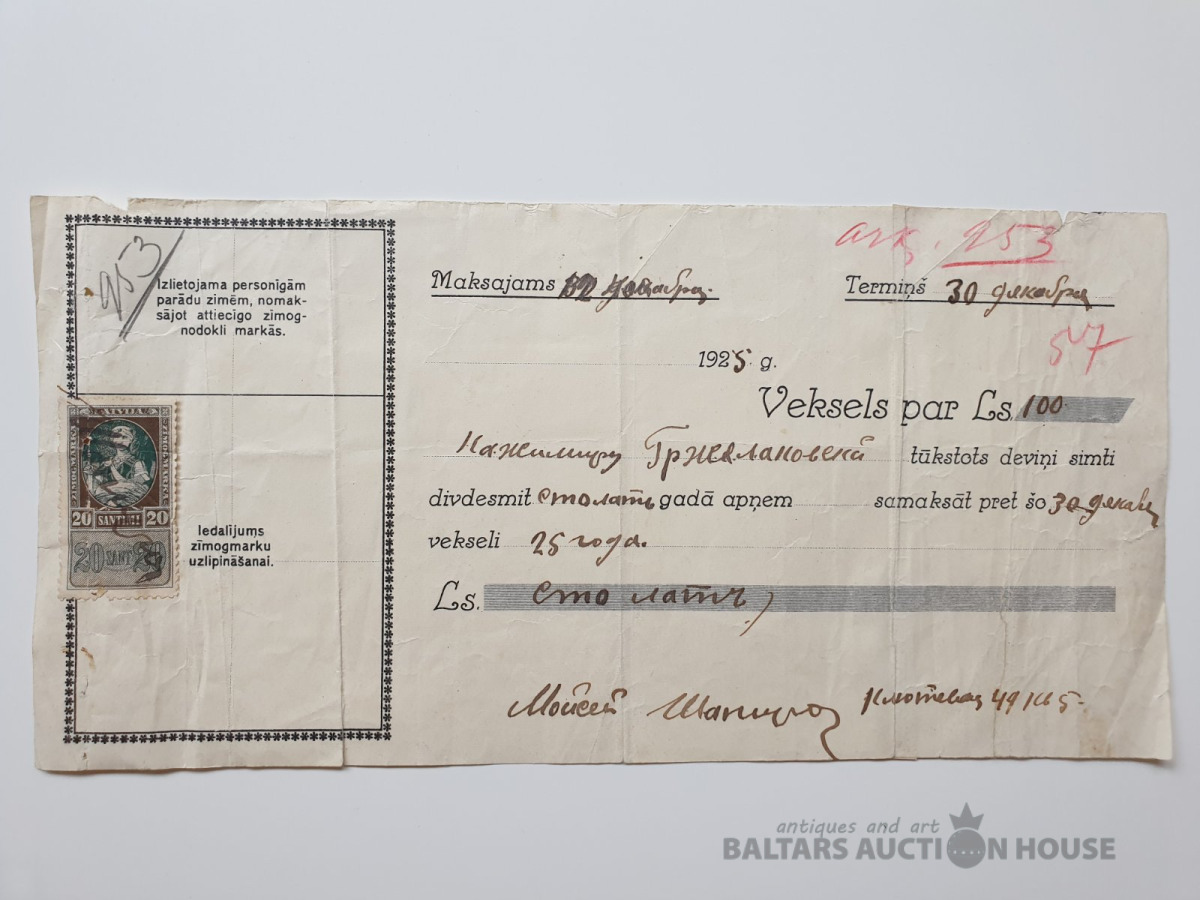 953
Izlietojama personīgām
parādu zimēm, nomak-
sājot attiecīgo zimog-
nodokli markās.
LATVIJA
ZĪMOGMARKA
ZĪMOGMARKA
20 SANTĪMI 20
20 SANT 20
Iedalījums
zīmogmarku
uzlipināšanai.
953
Maksajams
Termiņš 30 декабря
1925 g.
547
Veksels par Ls 100
Кажимиру tūkstots deviņi simti
divdesmit сто латъ gadā apņem samaksāt pret šo 30 декабр
vekseli 25 года.
Ls. сто латъ
Мойсей Шапиро 49 кв 5
antiques and art
BALTARS AUCTION HOUSE